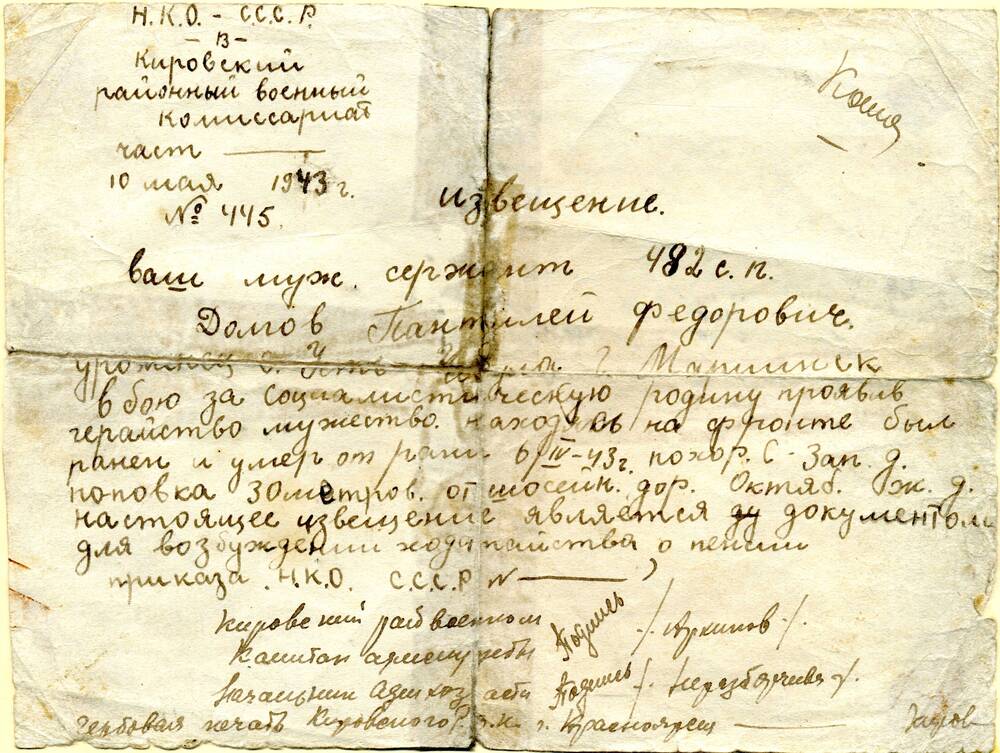 Н.К.О - С.С.С.Р.
- В -
Кировский
районный военный
комиссариат
част ———
10 мая 1943 г.
№ 445
Копия
извещение.
ваш муж. сержант 482 с. п.
Домов Пантилей Федорович.
урожинец с. г. Мариинск
в бою за социалистическую родину проявив
герайство мужество. находясь на фронте был
ранен и умер от ран 6/IV-43 г. похор. С-Зап. д.
поповка 30 метров. от шосейн. дор. Октяб. Ж. д.
настоящее извещение является ду документом
для возбуждении ходатайства о пенсии
приказа Н.К.О. С.С.С.Р N ———
Кировский райвоенком Подпись /Архипов/.
Капитан админслужбы
Начальник Адм хоз части Подпись /Неразборчива/.
гербовая печать Кировского Р.в.к г. Красноярск ———